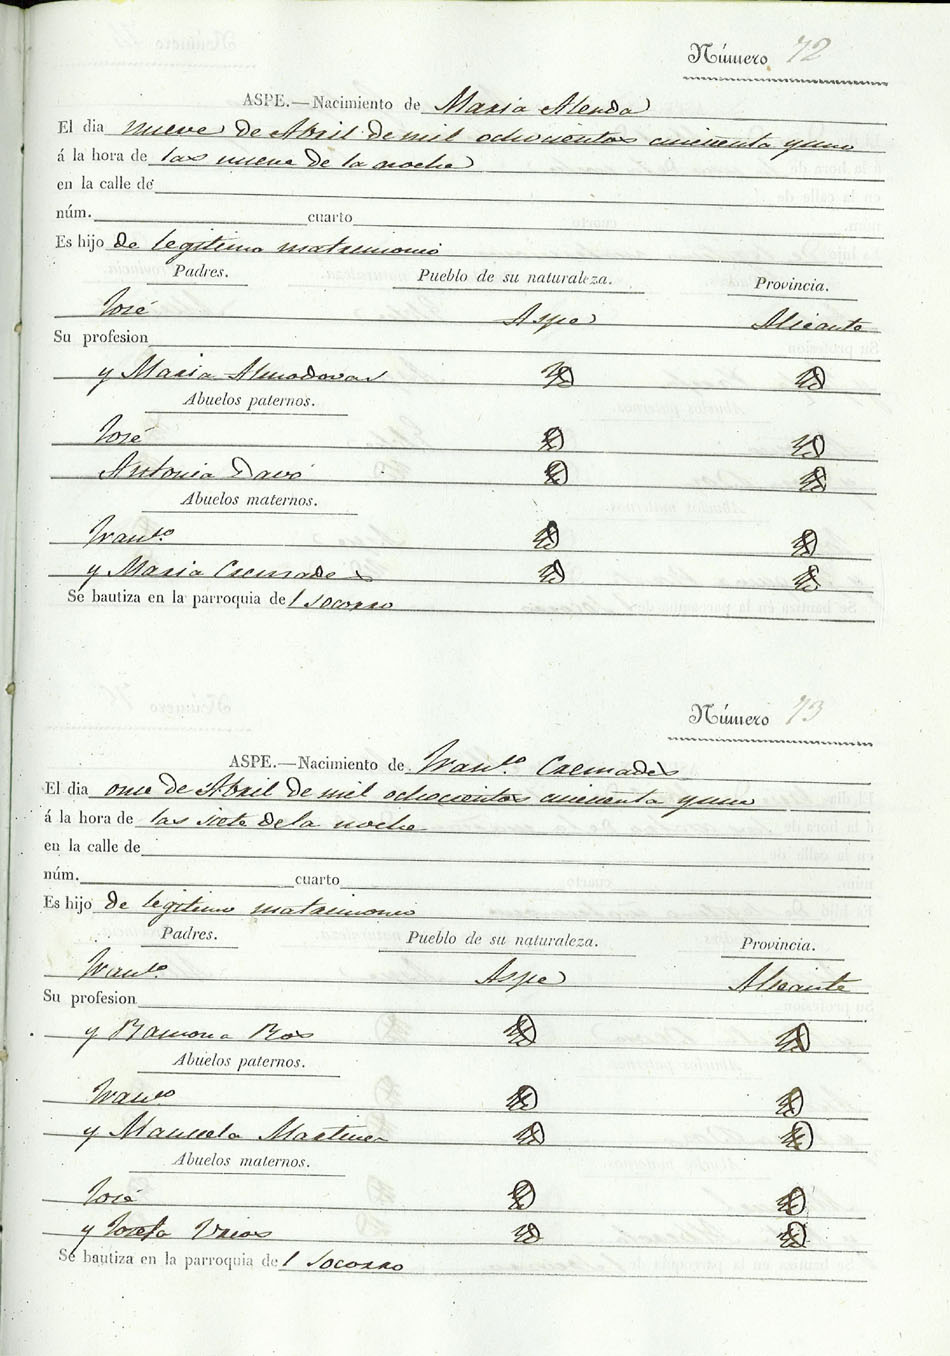 Número 72
ASPE.—Nacimiento de Maria Alenda
El dia nueve de Abril de mil ochocientos cincuenta y uno
á la hora de las nueve de la noche
en la calle de
núm. cuarto
Es hijo de legitimo matrimonio
Padres. Pueblo de su naturaleza. Provincia.
José Aspe Alicante
Su profesion
y Maria Almodovar
Abuelos paternos.
José
Antonia Davó
Abuelos maternos.
Franco.
y Maria Cremades
Se bautiza en la parroquia del Socorro
Número 73
ASPE.—Nacimiento de Franco. Cremades
El dia once de Abril de mil ochocientos cincuenta y uno
á la hora de las siete de la noche
en la calle de
núm. cuarto
Es hijo de legitimo matrimonio
Padres. Pueblo de su naturaleza. Provincia.
Franco. Aspe Alicante
Su profesion
y Ramona Bos
Abuelos paternos.
Franco
y Manuela Martinez
Abuelos maternos.
José
y Josefa
Se bautiza en la parroquia del Socorro